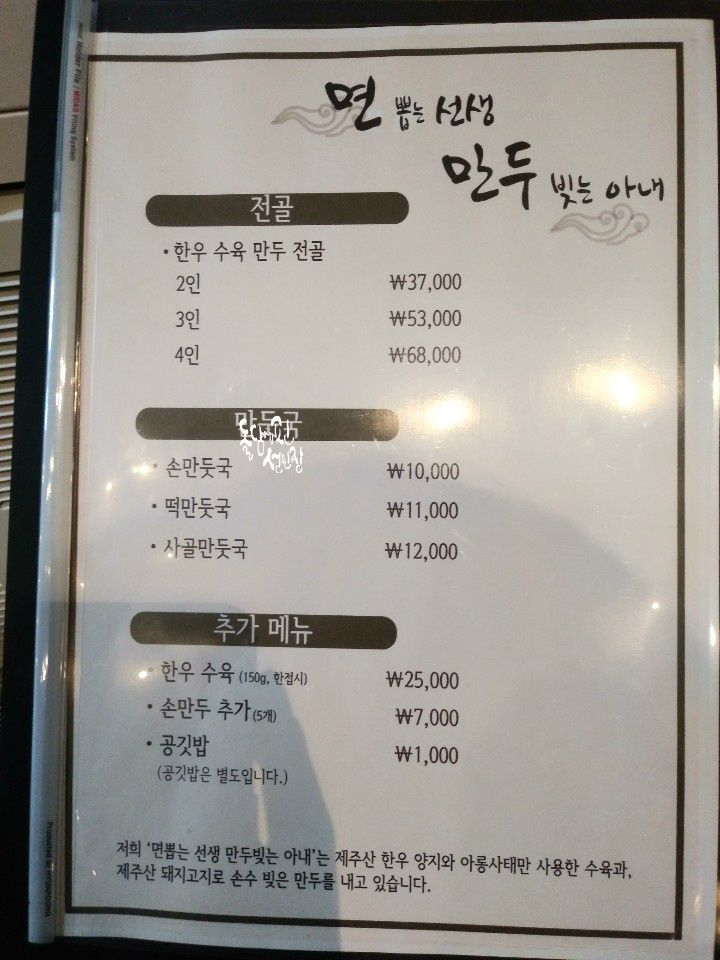 면 뽑는 선생
만두 빚는 아내
전골
• 한우 수육 만두 전골
2인 ₩37,000
3인 ₩53,000
4인 ₩68,000
만둣국
• 손만둣국 ₩10,000
• 떡만둣국 ₩11,000
• 사골만둣국 ₩12,000
추가 메뉴
• 한우 수육 (150g, 한접시) ₩25,000
• 손만두 추가 (5개) ₩7,000
• 공깃밥 ₩1,000
(공깃밥은 별도입니다.)
저희 '면뽑는 선생 만두빚는 아내'는 제주산 한우 양지와 아롱사태만 사용한 수육과,
제주산 돼지고지로 손수 빚은 만두를 내고 있습니다.
Holder File / MOAS Filing System